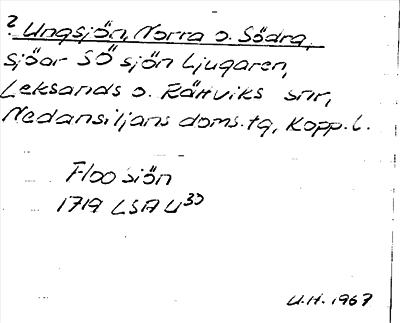 ? Ungsjön, Norra o. Södra,
sjöar SÖ sjön Ljugaren,
Leksands o. Rättviks snr,
Nedansiljans doms.tg, Kopp. l.
Floo siön
1719 LSA U³³
U.H. 1967